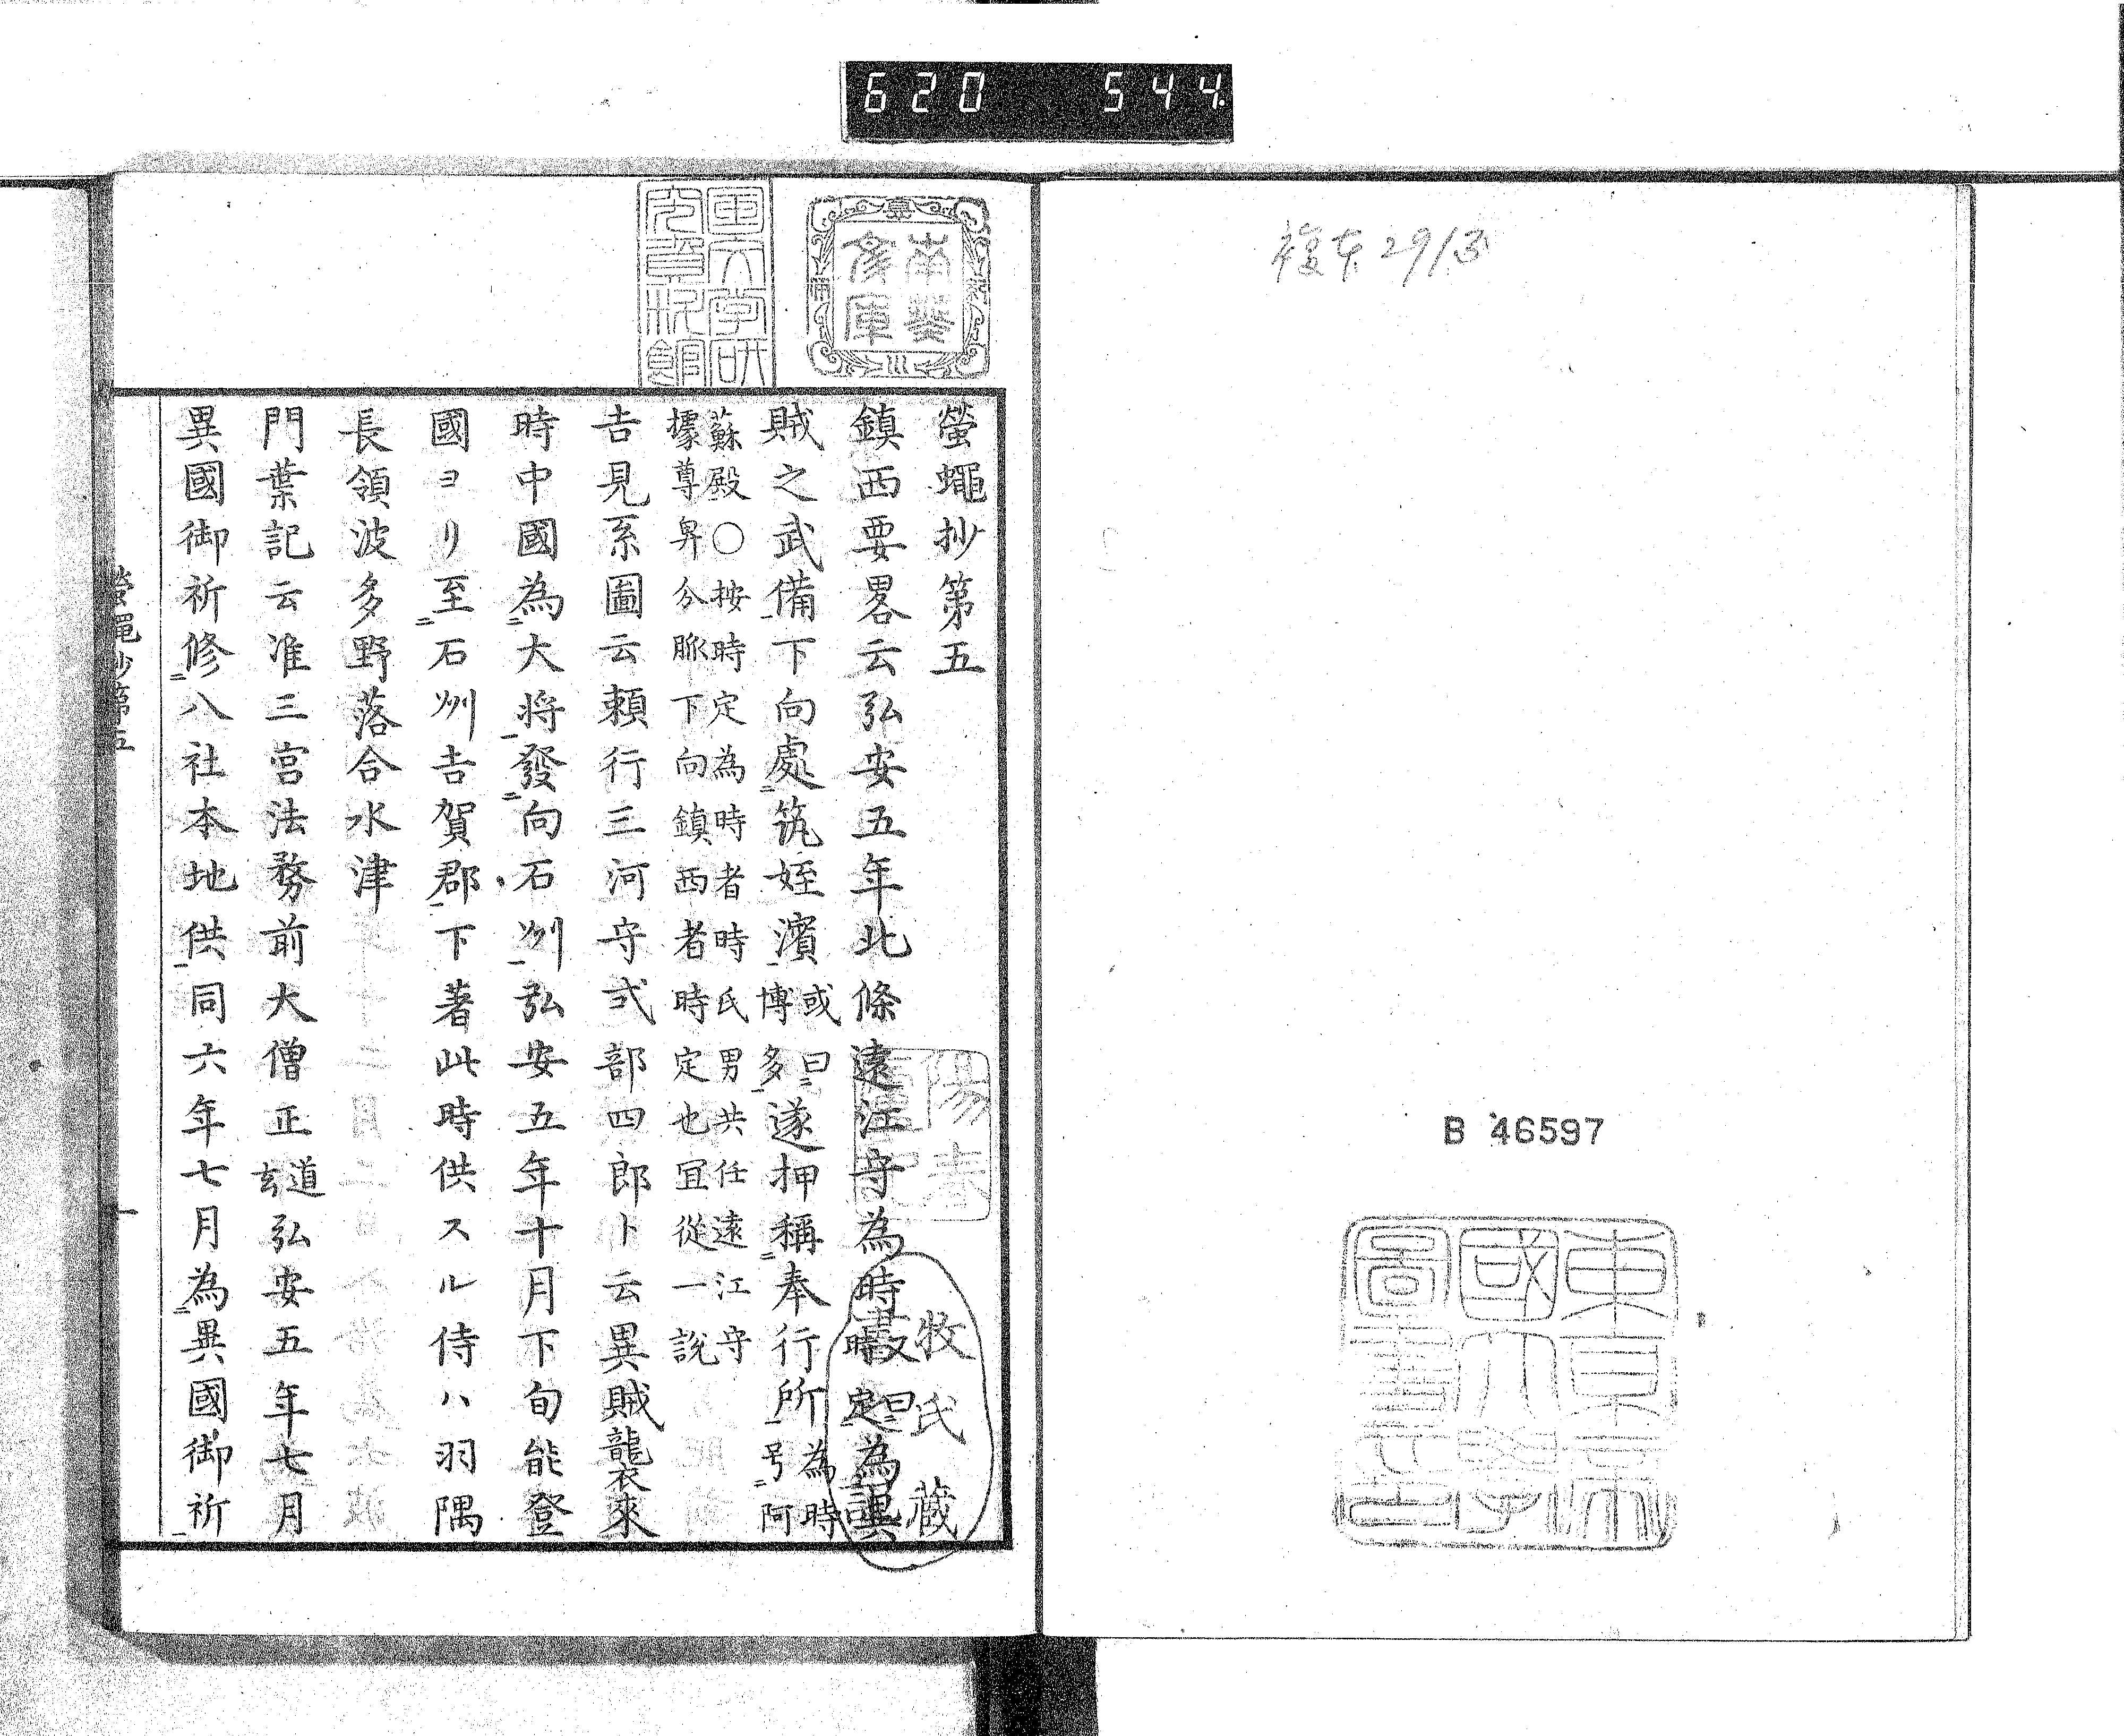 620 544
複本2913
B 46597
東京帝國大學圖書印
南葵文庫
国文学研究資料館
陽春
牧氏蔵書
螢蠅抄第五
鎮西要畧云弘安五年北條遠江守為時又曰時定為異
賊之武備下向處筑姪濱或曰博多遂押稱奉行所為時号阿
蘇殿○按時定為時者時氏男共任遠江守
據尊卑分脈下向鎮西者時定也宜從一說
吉見系圖云頼行三河守式部四郎ト云異賊襲來
時中國為大将發向石州弘安五年十月下旬能登
國ヨリ至石州吉賀郡下著此時供スル侍ハ羽隅
長領波多野落合水津
門葉記云准三宮法務前大僧正道玄弘安五年七月
異國御祈修八社本地供同六年七月為異國御祈
螢蠅抄第五
一